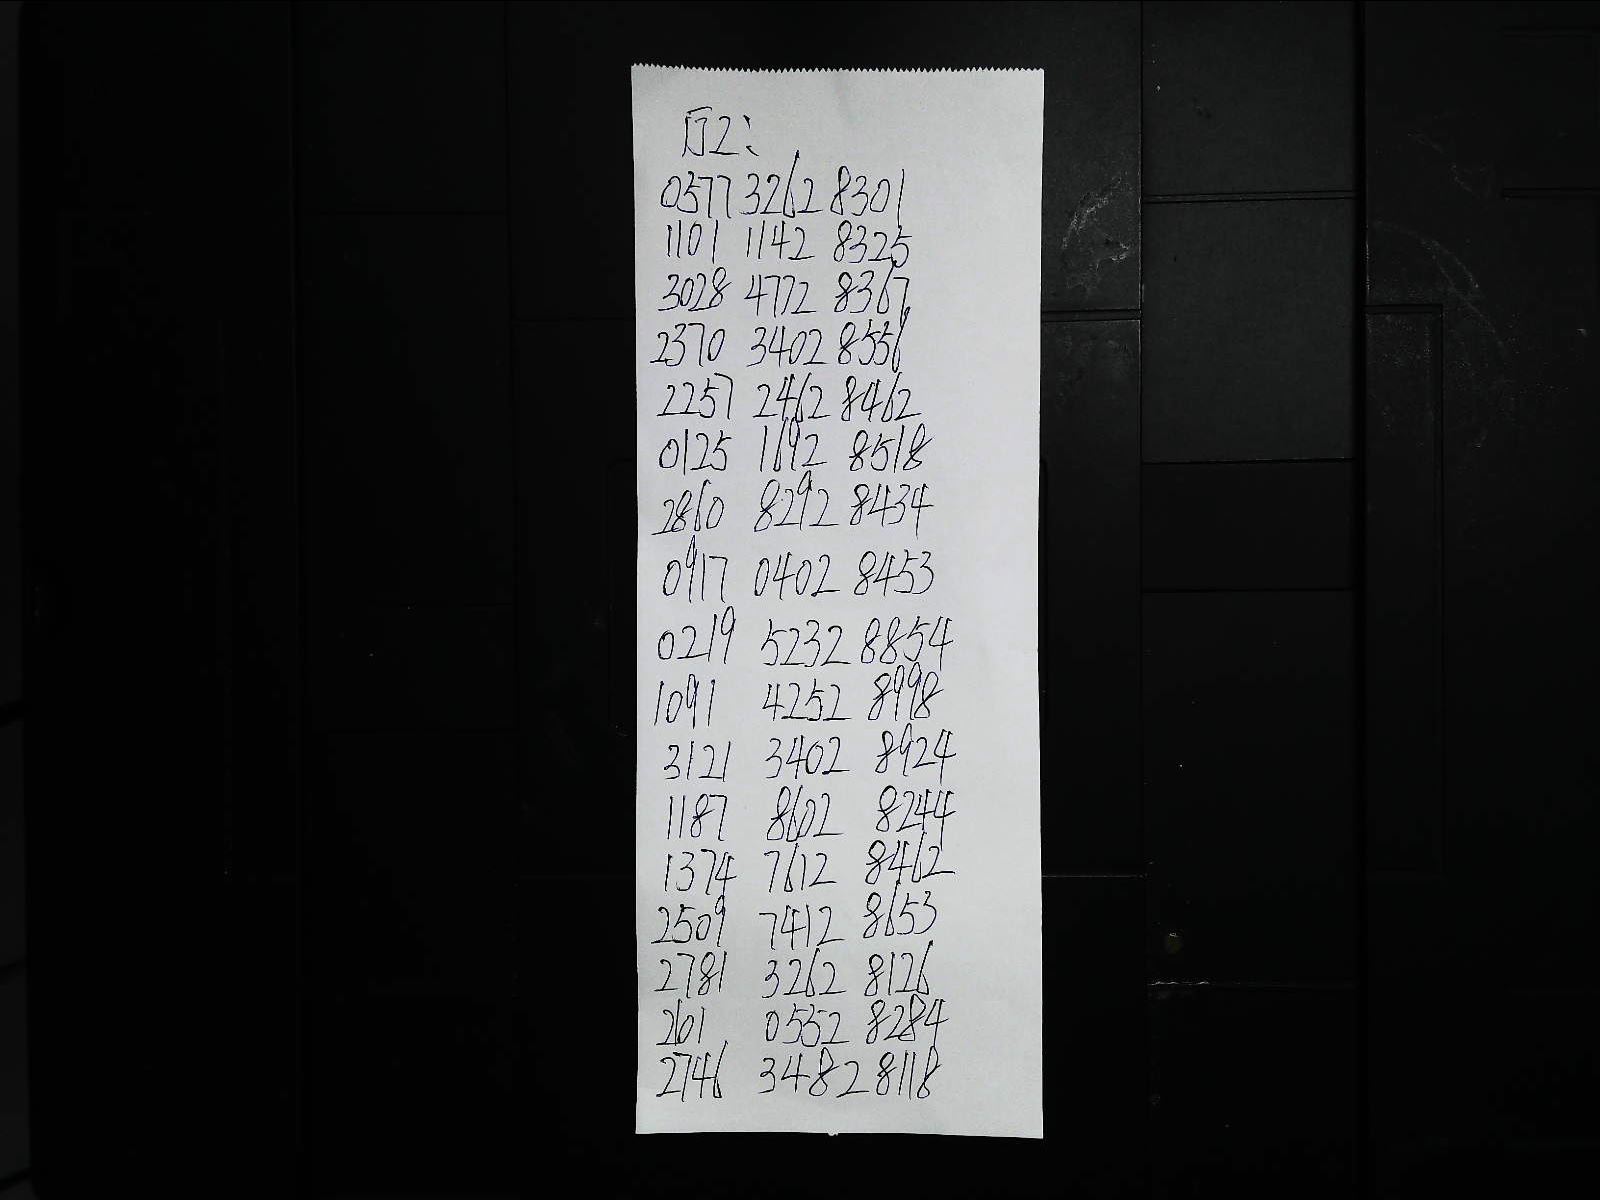 后2:
0577 3262 8301
1101 1142 8325
3028 4772 8367
2370 3402 8556
2257 2462 8462
0125 1692 8518
2860 8292 8434
0917 0402 8453
0219 5232 8854
1091 4252 8998
3121 3402 8924
1187 8602 8244
1374 7612 8462
2509 7412 8653
2781 3262 8126
2601 0552 8284
2746 3482 8118